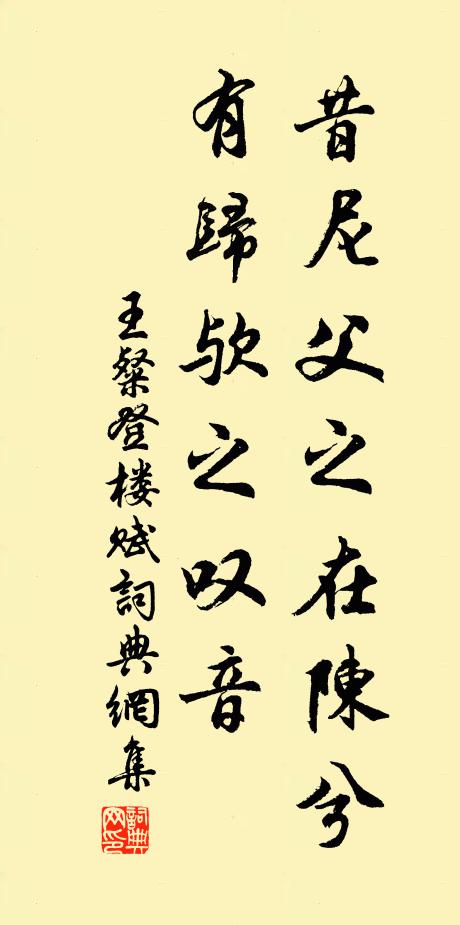 昔尼父之在陳兮
有歸欤之叹音
王粲登楼赋詞典網集
詞典
网印